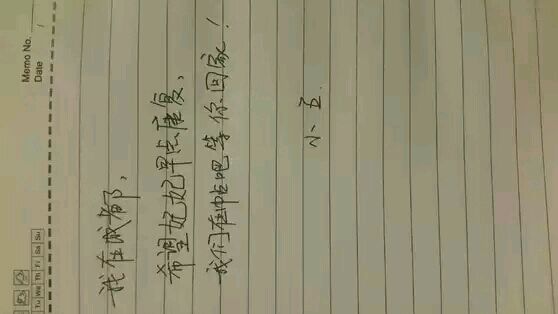 Memo No.
Date /
Tu We Th Fr Sa Su
我在成都,
希望妃妃早点康复,
我们在帖吧等你回家!
小五.